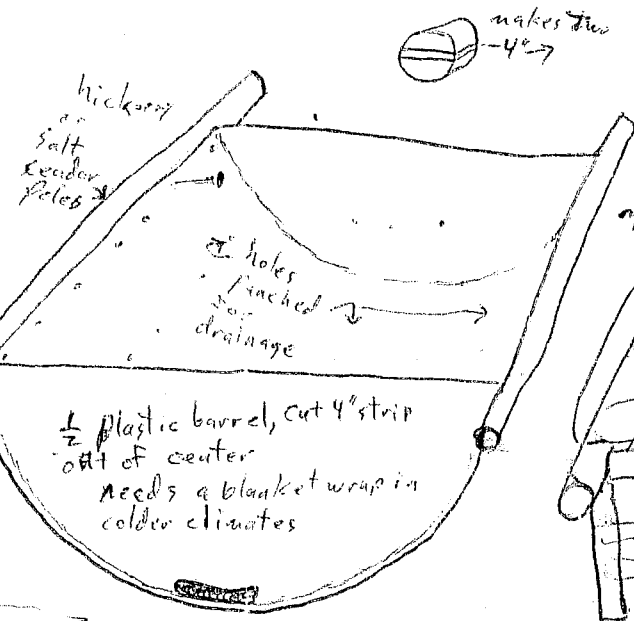 makes two
4"
hickory
or
salt
ceador
Poles
holes
punched
for
drainage
1/2 plastic barrel, cut 4" strip
out of center
needs a blanket wrap in
colder climates